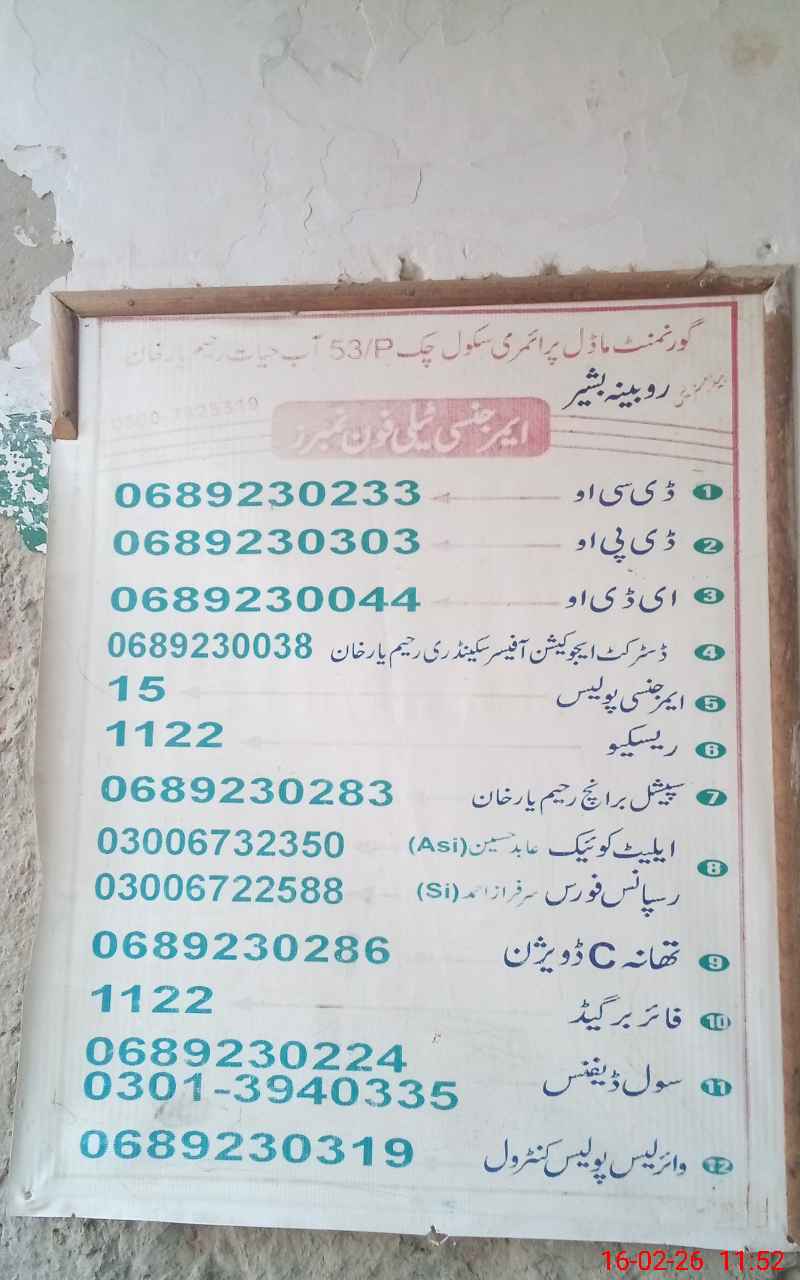 گورنمنٹ ماڈل پرائمری سکول چک 53/P آب حیات رحیم یار خان
روبینہ بشیر
ایمرجنسی ٹیلی فون نمبرز
1 ڈی سی او 0689230233
2 ڈی پی او 0689230303
3 ای ڈی او 0689230044
4 ڈسٹرکٹ ایجوکیشن آفیسر سکینڈری رحیم یار خان 0689230038
5 ایمرجنسی پولیس 15
6 ریسکیو 1122
7 سپیشل برانچ رحیم یار خان 0689230283
8 ایلیٹ کوئیک عابد حسین (Asi) 03006732350
رسپانس فورس سرفراز احمد (Si) 03006722588
9 تھانہ C ڈویژن 0689230286
10 فائر بر گیڈ 1122
11 سول ڈیفنس 0689230224
0301-3940335
12 وائرلیس پولیس کنٹرول 0689230319
16-02-26 11:52